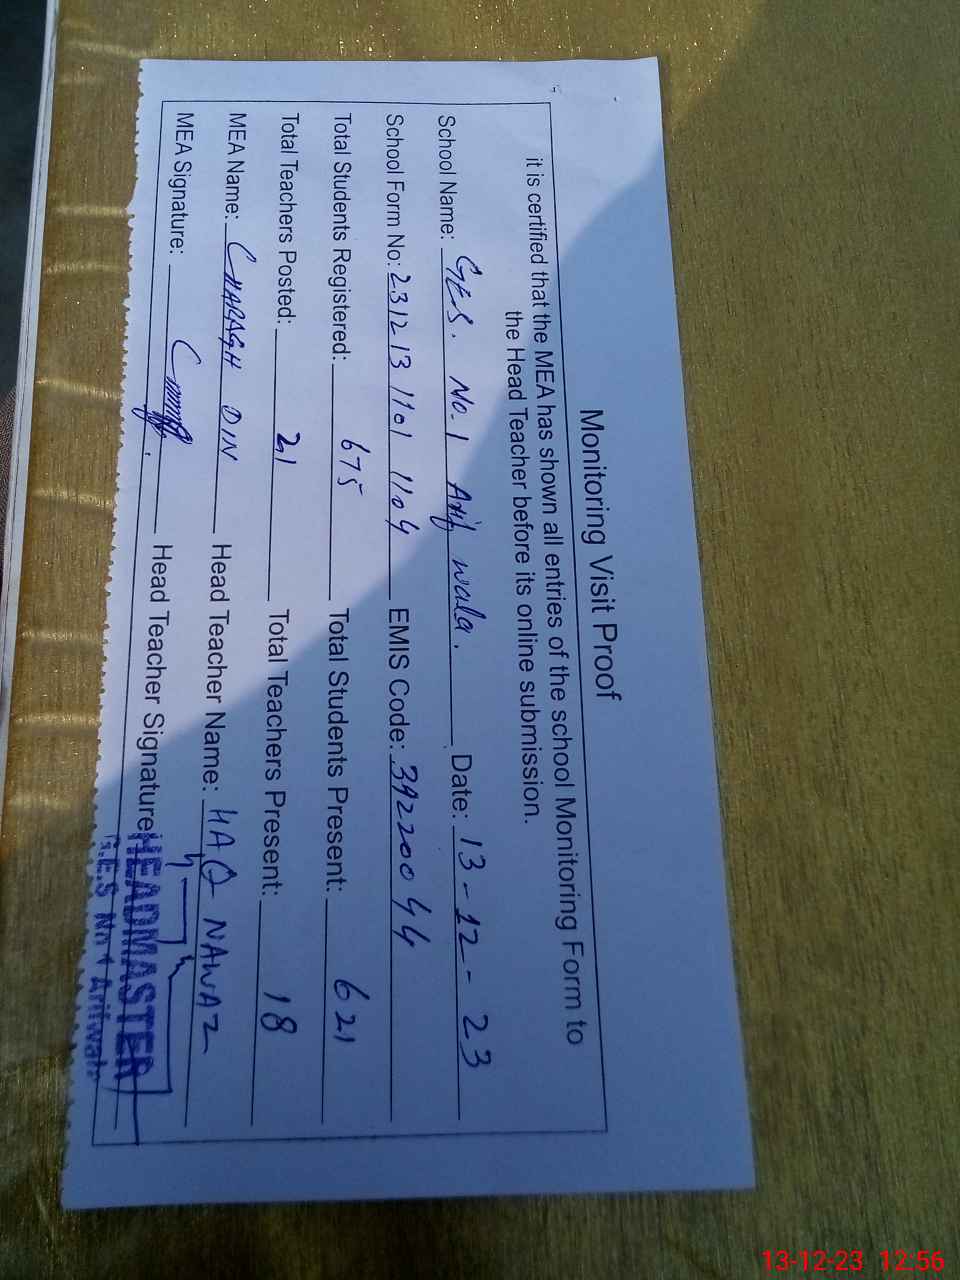 Monitoring Visit Proof
it is certified that the MEA has shown all entries of the school Monitoring Form to
the Head Teacher before its online submission.
School Name: GES. No. 1 Arif wala. Date: 13-12-23
School Form No: 231213 1101 1104 EMIS Code: 39220044
Total Students Registered: 675 Total Students Present: 621
Total Teachers Posted: 21 Total Teachers Present: 18
MEA Name: CHARAGH DIN Head Teacher Name: HAQ NAWAZ
MEA Signature: Head Teacher Signature:
HEADMASTER
G.E.S No 1 Arifwala
13-12-23 12:56